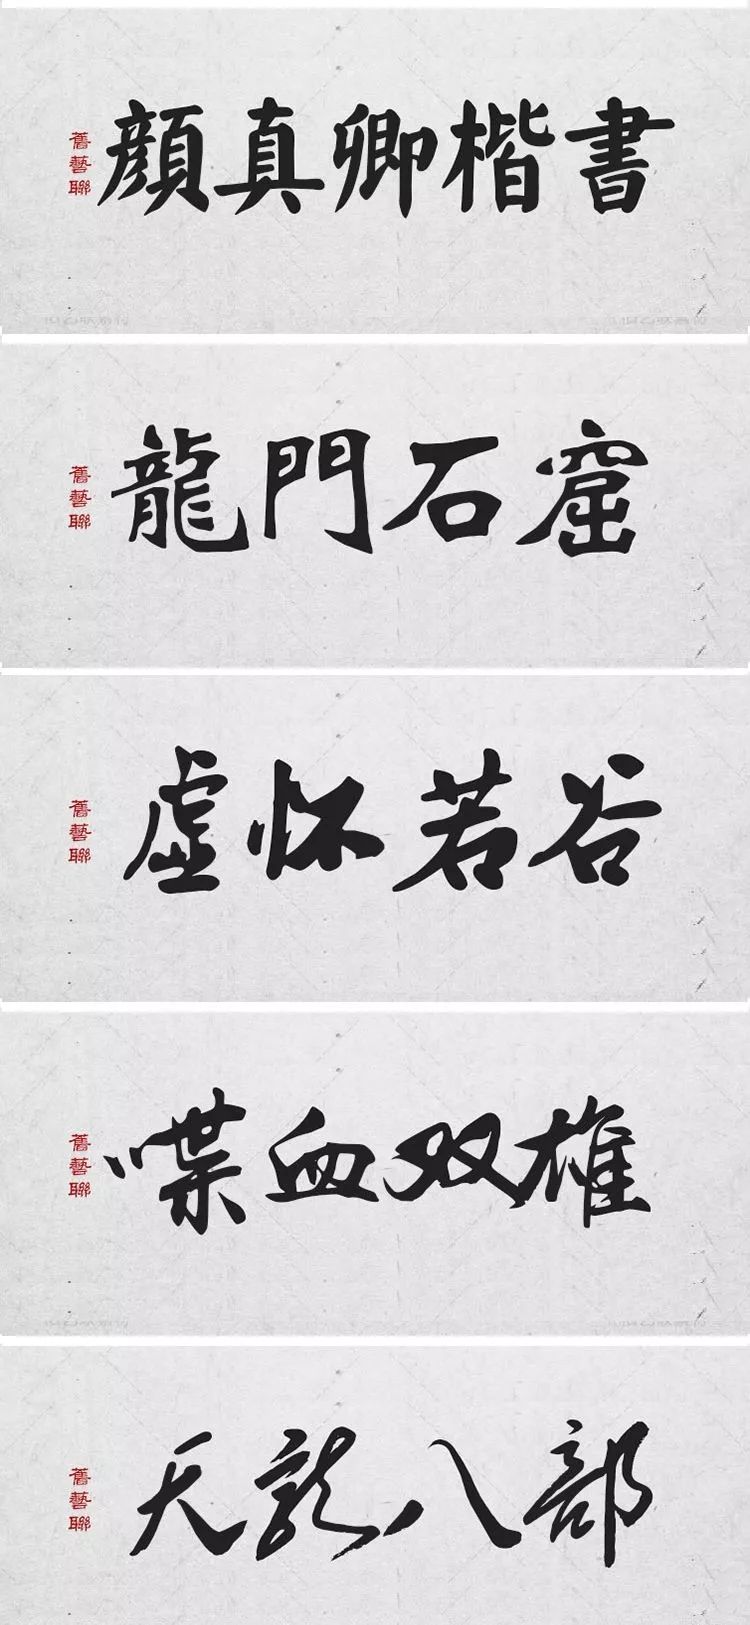 顔真卿楷書
舊藝聯
龍門石窟
舊藝聯
虚怀若谷
舊藝聯
喋血双雄
舊藝聯
天龙八部
舊藝聯